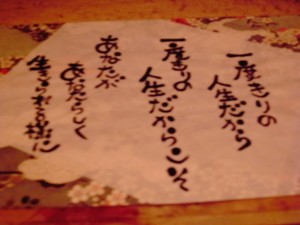 一度きりの
人生だから
一度きりの
人生だからこそ
あなたが
あなたらしく
生きられる様に